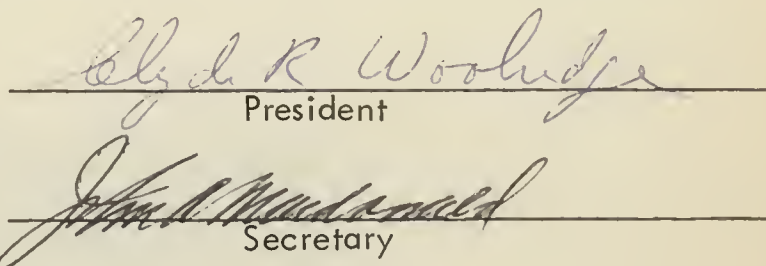 Clyde R Woolridge
President
John A. Macdonald
Secretary